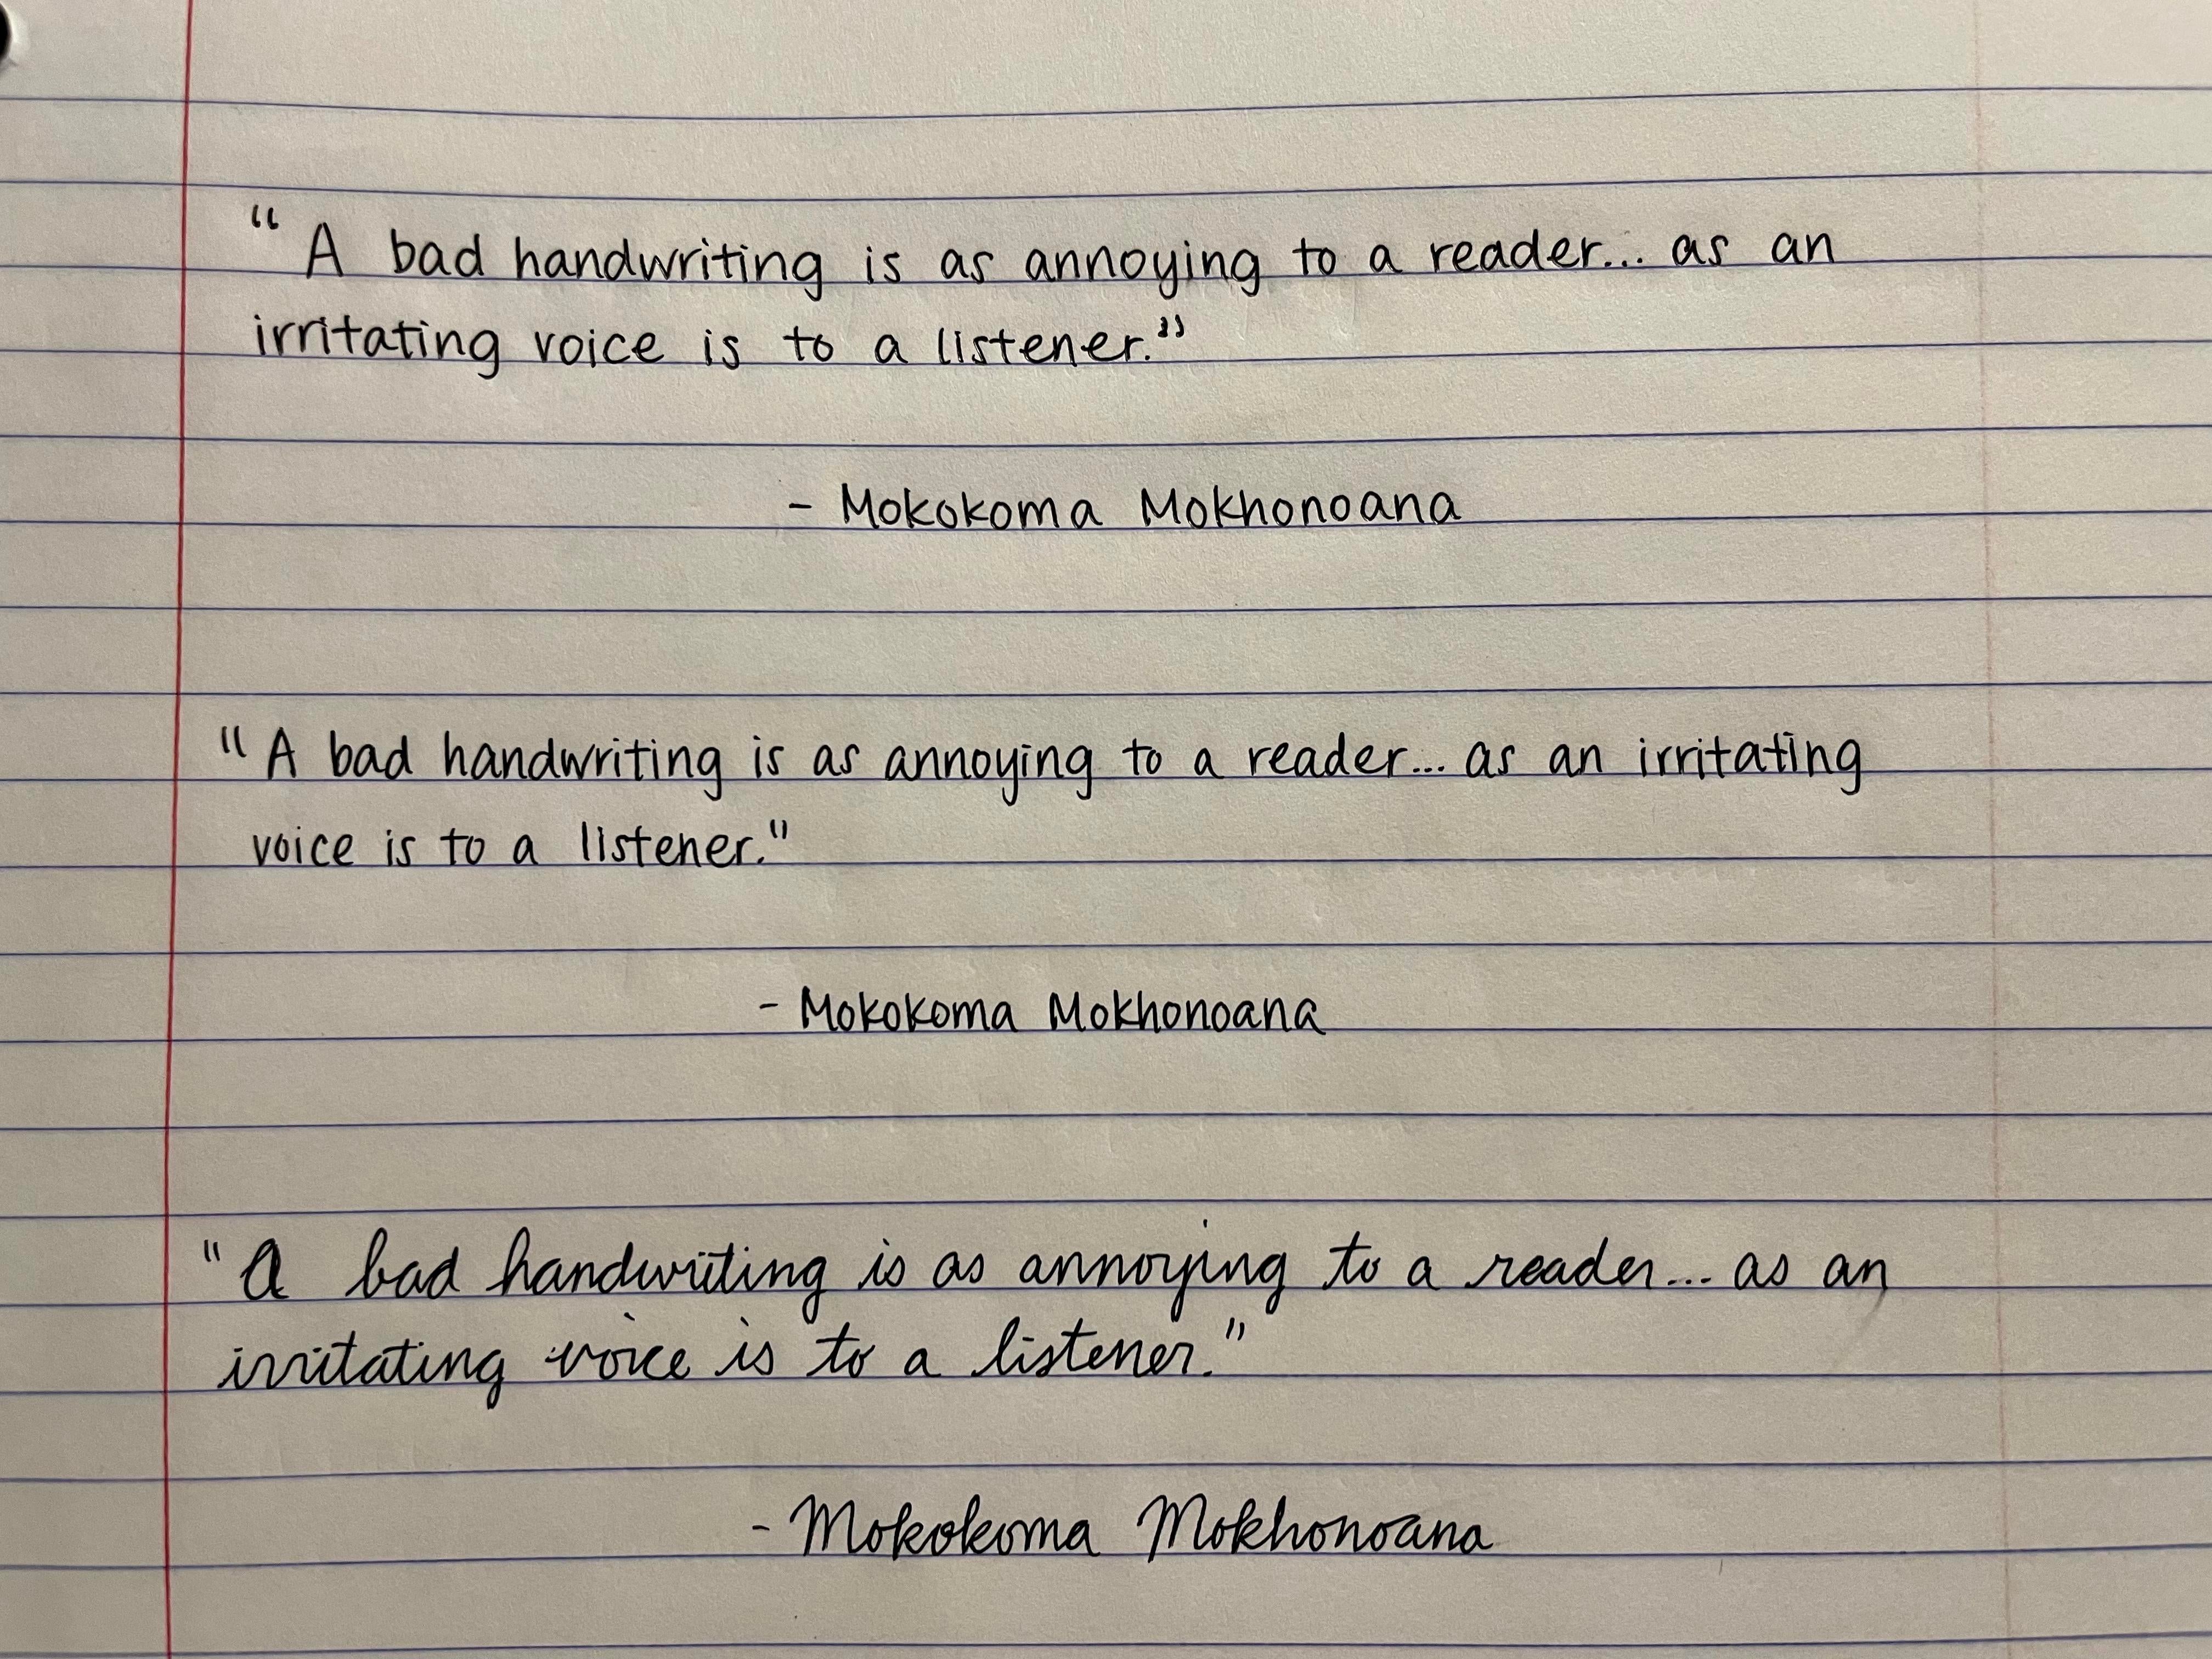 “A bad handwriting is as annoying to a reader... as an
irritating voice is to a listener.”
- Mokokoma Mokhonoana
"A bad handwriting is as annoying to a reader... as an irritating
voice is to a listener."
- Mokokoma Mokhonoana
"A bad handwriting is as annoying to a reader... as an
irritating voice is to a listener."
- Mokokoma Mokhonoana